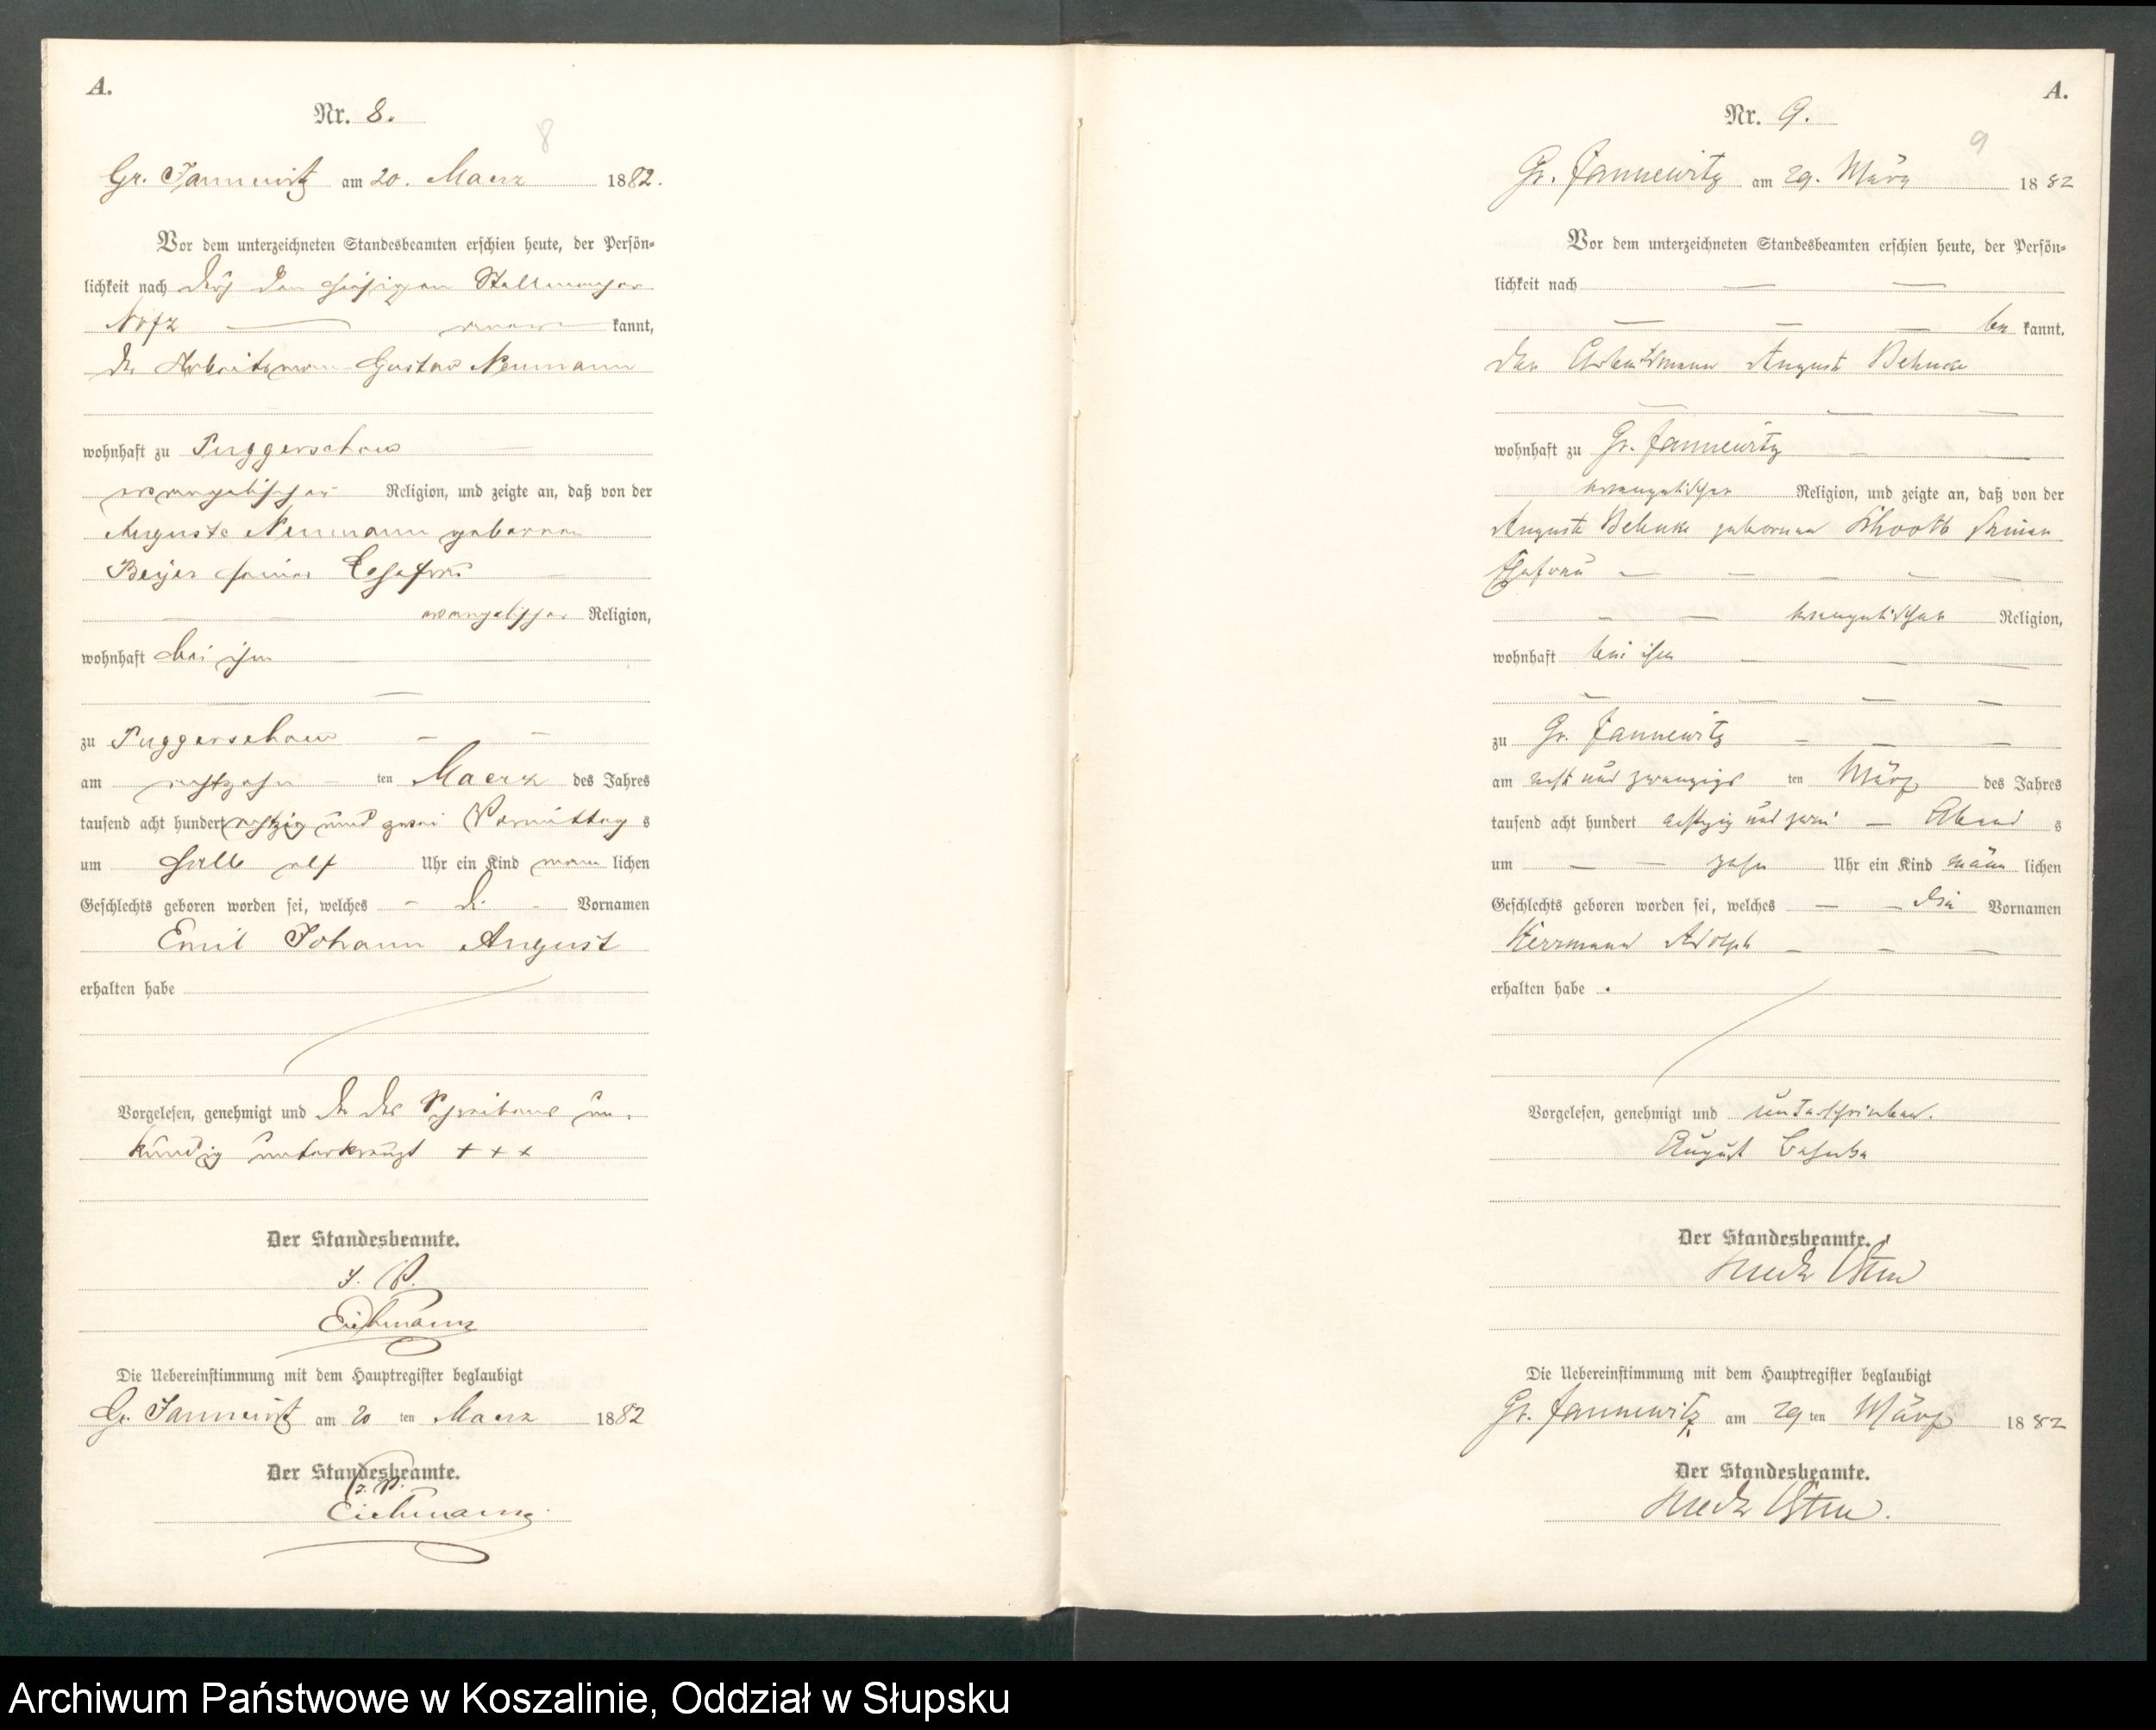 A.
Nr. 8.
8
Gr. Jannewitz am 20. Maerz 1882.
Vor dem unterzeichneten Standesbeamten erschien heute, der Persön-
lichkeit nach durch den hiesigen Stellmacher
kannt,
der Arbeitsmann Gustav Neumann
wohnhaft zu Puggerschow
evangelischer Religion, und zeigte an, daß von der
Auguste Neumann geborene
Beyer seiner Ehefrau
evangelischer Religion,
wohnhaft bei ihm
zu Puggerschow
am achtzehn ten Maerz des Jahres
tausend acht hundert achtzig und zwei Vormittag s
um halb elf Uhr ein Kind männ lichen
Geschlechts geboren worden sei, welches die Vornamen
Emil Johann August
erhalten habe
Vorgelesen, genehmigt und da des Schreibens un-
kundig unterkreuzt + + +
Der Standesbeamte.
J. V.
Eichmann
Die Uebereinstimmung mit dem Hauptregister beglaubigt
Gr. Jannewitz am 20 ten Maerz 1882
Der Standesbeamte.
J. V.
Eichmann.
A.
Nr. 9.
9
Gr. Jannewitz am 29. März 1882
Vor dem unterzeichneten Standesbeamten erschien heute, der Persön-
lichkeit nach
be kannt,
der Arbeitsmann August Behnke
wohnhaft zu Gr. Jannewitz
evangelischer Religion, und zeigte an, daß von der
Auguste Behnke geborenen seiner
Ehefrau
evangelischer Religion,
wohnhaft bei ihm
zu Gr. Jannewitz
am acht und zwanzigs ten März des Jahres
tausend acht hundert achtzig und zwei Abend s
um zehn Uhr ein Kind männ lichen
Geschlechts geboren worden sei, welches die Vornamen
Herrmann Adolph
erhalten habe.
Vorgelesen, genehmigt und unterschrieben.
August Behnke
Der Standesbeamte.
Die Uebereinstimmung mit dem Hauptregister beglaubigt
Gr. Jannewitz am 29 ten März 1882
Der Standesbeamte.
Archiwum Państwowe w Koszalinie, Oddział w Słupsku